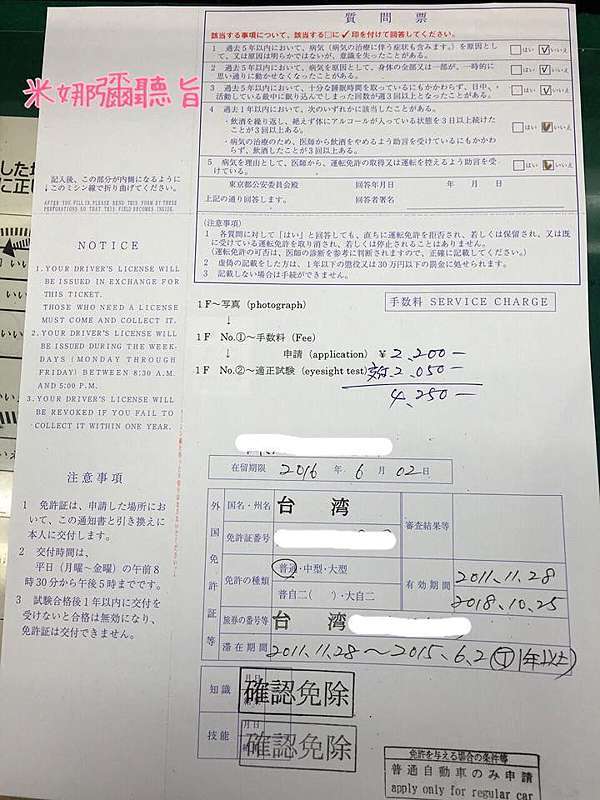 質問票
該当する事項について、該当する□に✓印を付けて回答してください。
1 過去5年以内において、病気（病気の治療に伴う症状も含みます。）を原因として、又は原因は明らかではないが、意識を失ったことがある。 □はい ☑いいえ
2 過去5年以内において、病気を原因として、身体の全部又は一部が、一時的に思い通りに動かせなくなったことがある。 □はい ☑いいえ
3 過去5年以内において、十分な睡眠時間を取っているにもかかわらず、日中、活動している最中に眠り込んでしまった回数が週3回以上となったことがある。 □はい ☑いいえ
4 過去1年以内において、次のいずれかに該当したことがある。
・飲酒を繰り返し、絶えず体にアルコールが入っている状態を3日以上続けたことが3回以上ある。
・病気の治療のため、医師から飲酒をやめるよう助言を受けているにもかかわらず、飲酒したことが3回以上ある。 □はい ☑いいえ
5 病気を理由として、医師から、運転免許の取得又は運転を控えるよう助言を受けている。 □はい ☑いいえ
東京都公安委員会殿 回答年月日 年 月 日
上記の通り回答します。 回答者署名
(注意事項)
1 各質問に対して「はい」と回答しても、直ちに運転免許を拒否され、若しくは保留され、又は既に受けている運転免許を取り消され、若しくは停止されることはありません。
(運転免許の可否は、医師の診断を参考に判断されますので、正確に記載してください。)
2 虚偽の記載をした方は、1年以下の懲役又は30万円以下の罰金に処せられます。
3 記載しない場合は手続ができません。
米娜彌聽旨
記入後、この部分が内側になるように
このミシン線で折り曲げてください。
AFTER YOU FILL IN, PLEASE SEND THIS FORM BY THESE
PERFORATIONS SO THAT THIS FIELD BECOMES INSIDE.
NOTICE
1. YOUR DRIVER'S LICENSE WILL
BE ISSUED IN EXCHANGE FOR
THIS TICKET.
THOSE WHO NEED A LICENSE
MUST COME AND COLLECT IT.
2. YOUR DRIVER'S LICENSE WILL
BE ISSUED DURING THE WEEK-
DAYS (MONDAY THROUGH
FRIDAY) BETWEEN 8:30 A.M.
AND 5:00 P.M.
3. YOUR DRIVER'S LICENSE WILL
BE REVOKED IF YOU FAIL TO
COLLECT IT WITHIN ONE YEAR.
注意事項
1 免許証は、申請した場所において、この通知書と引き換えに本人に交付します。
2 交付時間は、
平日（月曜～金曜）の午前8時30分から午後5時までです。
3 試験合格後1年以内に交付を受けないと合格は無効になり、免許証は交付できません。
手数料 SERVICE CHARGE
1F～写真 (photograph)
↓
1F No.①～手数料 (Fee)
↓ 申請 (application) ¥2,200-
1F No.②～適正試験 (eyesight test) 交付 2,050-
4,250-
在留期限 2016 年 6 月 02 日
外国免許証等
国名・州名 台湾
免許証番号
審査結果等
免許の種類 普通・中型・大型
普自二( )・大自二
有効期間 2011.11.28
2018.10.25
旅券の番号等 台湾
滞在期間 2011.11.28～2015.6.2 1年以上
知識 月 日 確認免除
技能 月 日 確認免除
免許を与える場合の条件等
普通自動車のみ申請
apply only for regular car